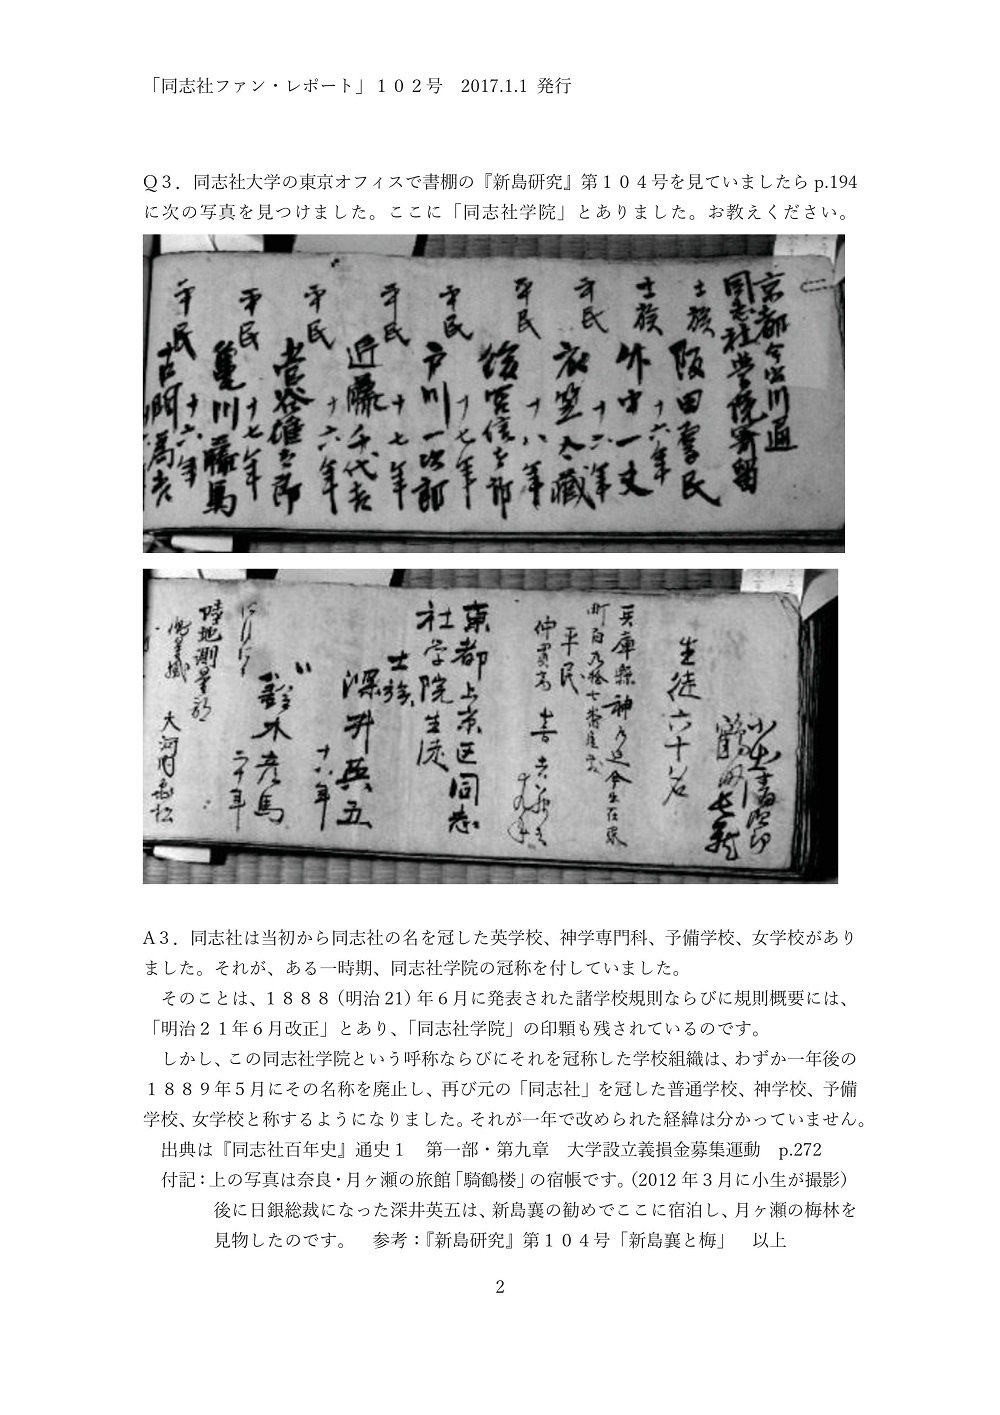 「同志社ファン・レポート」１０２号　2017.1.1 発行
Q３．同志社大学の東京オフィスで書棚の『新島研究』第１０４号を見ていましたら p.194
に次の写真を見つけました。ここに「同志社学院」とありました。お教えください。
京都今出川通
同志社学院寄留
士族 阪田
十六年
士族 外中一丈
平民 衣笠
十八年
平民
十七年
平民 戸川一次郎
十七年
平民 近藤千代吉
十六年
平民 雄三郎
十七年
平民 亀川藤馬
十六年
平民 古
生徒六十名
兵庫縣神
平民
京都上京区同志
社学院生徒
士族 深井英五
十八年
鈴木彦馬
二十年
陸地測量部
A３．同志社は当初から同志社の名を冠した英学校、神学専門科、予備学校、女学校があり
ました。それが、ある一時期、同志社学院の冠称を付していました。
そのことは、１８８８（明治 21）年６月に発表された諸学校規則ならびに規則概要には、
「明治２１年６月改正」とあり、「同志社学院」の印顆も残されているのです。
しかし、この同志社学院という呼称ならびにそれを冠称した学校組織は、わずか一年後の
１８８９年５月にその名称を廃止し、再び元の「同志社」を冠した普通学校、神学校、予備
学校、女学校と称するようになりました。それが一年で改められた経緯は分かっていません。
出典は『同志社百年史』通史１　第一部・第九章　大学設立義損金募集運動　p.272
付記：上の写真は奈良・月ヶ瀬の旅館「騎鶴楼」の宿帳です。（2012 年３月に小生が撮影）
後に日銀総裁になった深井英五は、新島襄の勧めでここに宿泊し、月ヶ瀬の梅林を
見物したのです。　参考：『新島研究』第１０４号「新島襄と梅」　以上
2